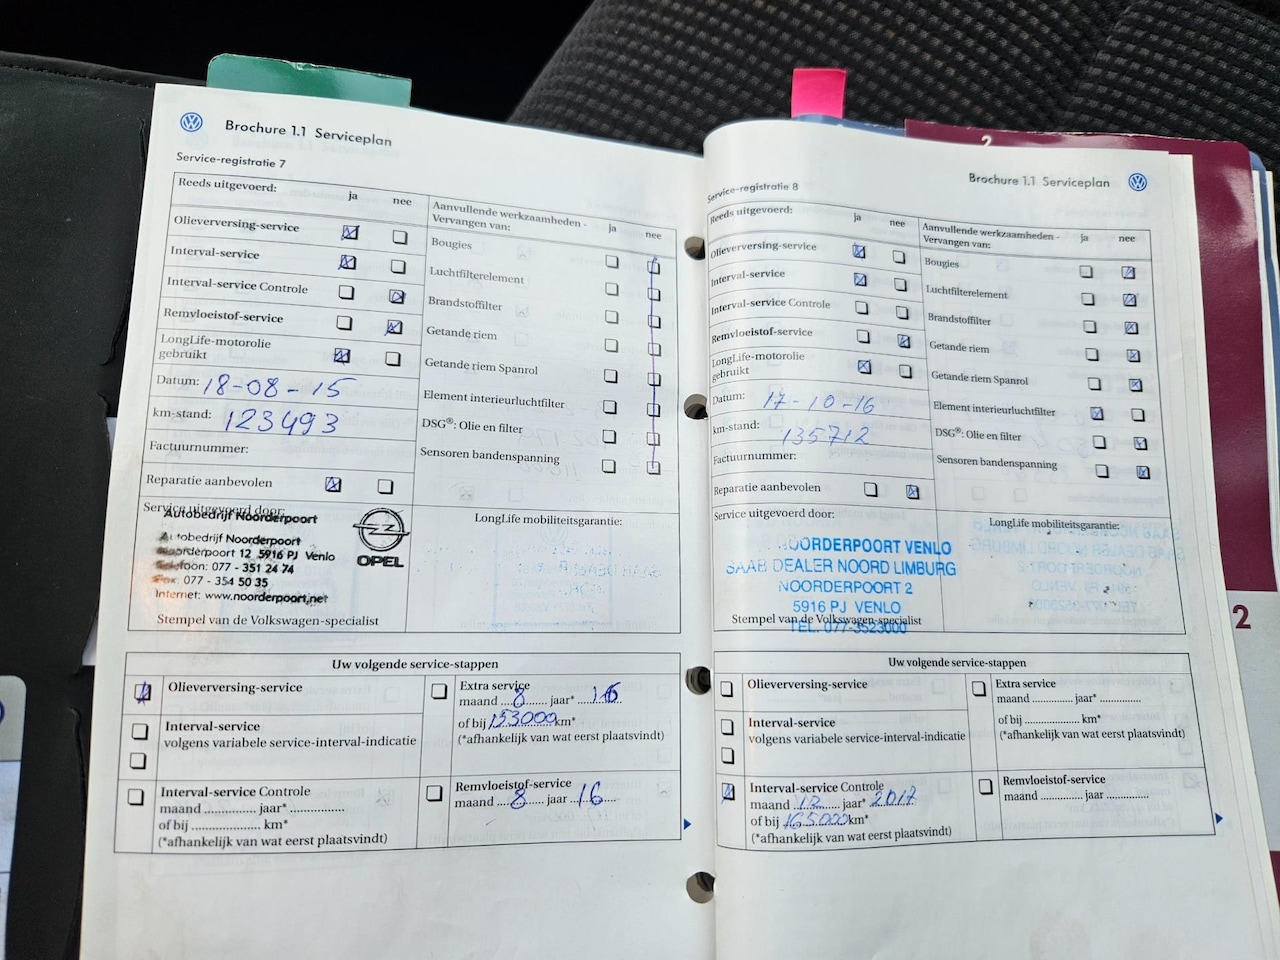 Brochure 1.1 Serviceplan
Service-registratie 7
Reeds uitgevoerd:
ja
nee
Olieverversing-service
Interval-service
Interval-service Controle
Remvloeistof-service
LongLife-motorolie
gebruikt
Datum: 18-08-15
km-stand: 123493
Factuurnummer:
Reparatie aanbevolen
Aanvullende werkzaamheden -
Vervangen van:
ja
nee
Bougies
Luchtfilterelement
Brandstoffilter
Getande riem
Getande riem Spanrol
Element interieurluchtfilter
DSG®: Olie en filter
Sensoren bandenspanning
Service uitgevoerd door:
Autobedrijf Noorderpoort
Autobedrijf Noorderpoort
Noorderpoort 12 5916 PJ Venlo
Telefoon: 077 - 351 24 74
Fax: 077 - 354 50 35
Internet: www.noorderpoort.net
OPEL
Stempel van de Volkswagen-specialist
LongLife mobiliteitsgarantie:
Uw volgende service-stappen
Olieverversing-service
Interval-service
volgens variabele service-interval-indicatie
Interval-service Controle
maand ............ jaar* ...............
of bij ................... km*
(*afhankelijk van wat eerst plaatsvindt)
Extra service
maand 8 jaar* 16
of bij 153000 km*
(*afhankelijk van wat eerst plaatsvindt)
Remvloeistof-service
maand 8 jaar 16
2
Brochure 1.1 Serviceplan
Service-registratie 8
Reeds uitgevoerd:
ja
nee
Olieverversing-service
Interval-service
Interval-service Controle
Remvloeistof-service
LongLife-motorolie
gebruikt
Datum: 17-10-16
km-stand: 135712
Factuurnummer:
Reparatie aanbevolen
Aanvullende werkzaamheden -
Vervangen van:
ja
nee
Bougies
Luchtfilterelement
Brandstoffilter
Getande riem
Getande riem Spanrol
Element interieurluchtfilter
DSG®: Olie en filter
Sensoren bandenspanning
Service uitgevoerd door:
NOORDERPOORT VENLO
SAAB DEALER NOORD LIMBURG
NOORDERPOORT 2
5916 PJ VENLO
TEL. 077-3523000
Stempel van de Volkswagen-specialist
LongLife mobiliteitsgarantie:
Uw volgende service-stappen
Olieverversing-service
Interval-service
volgens variabele service-interval-indicatie
Interval-service Controle
maand 12 jaar* 2017
of bij 165000 km*
(*afhankelijk van wat eerst plaatsvindt)
Extra service
maand ............ jaar* ...............
of bij .................... km*
(*afhankelijk van wat eerst plaatsvindt)
Remvloeistof-service
maand ............ jaar ...............
2